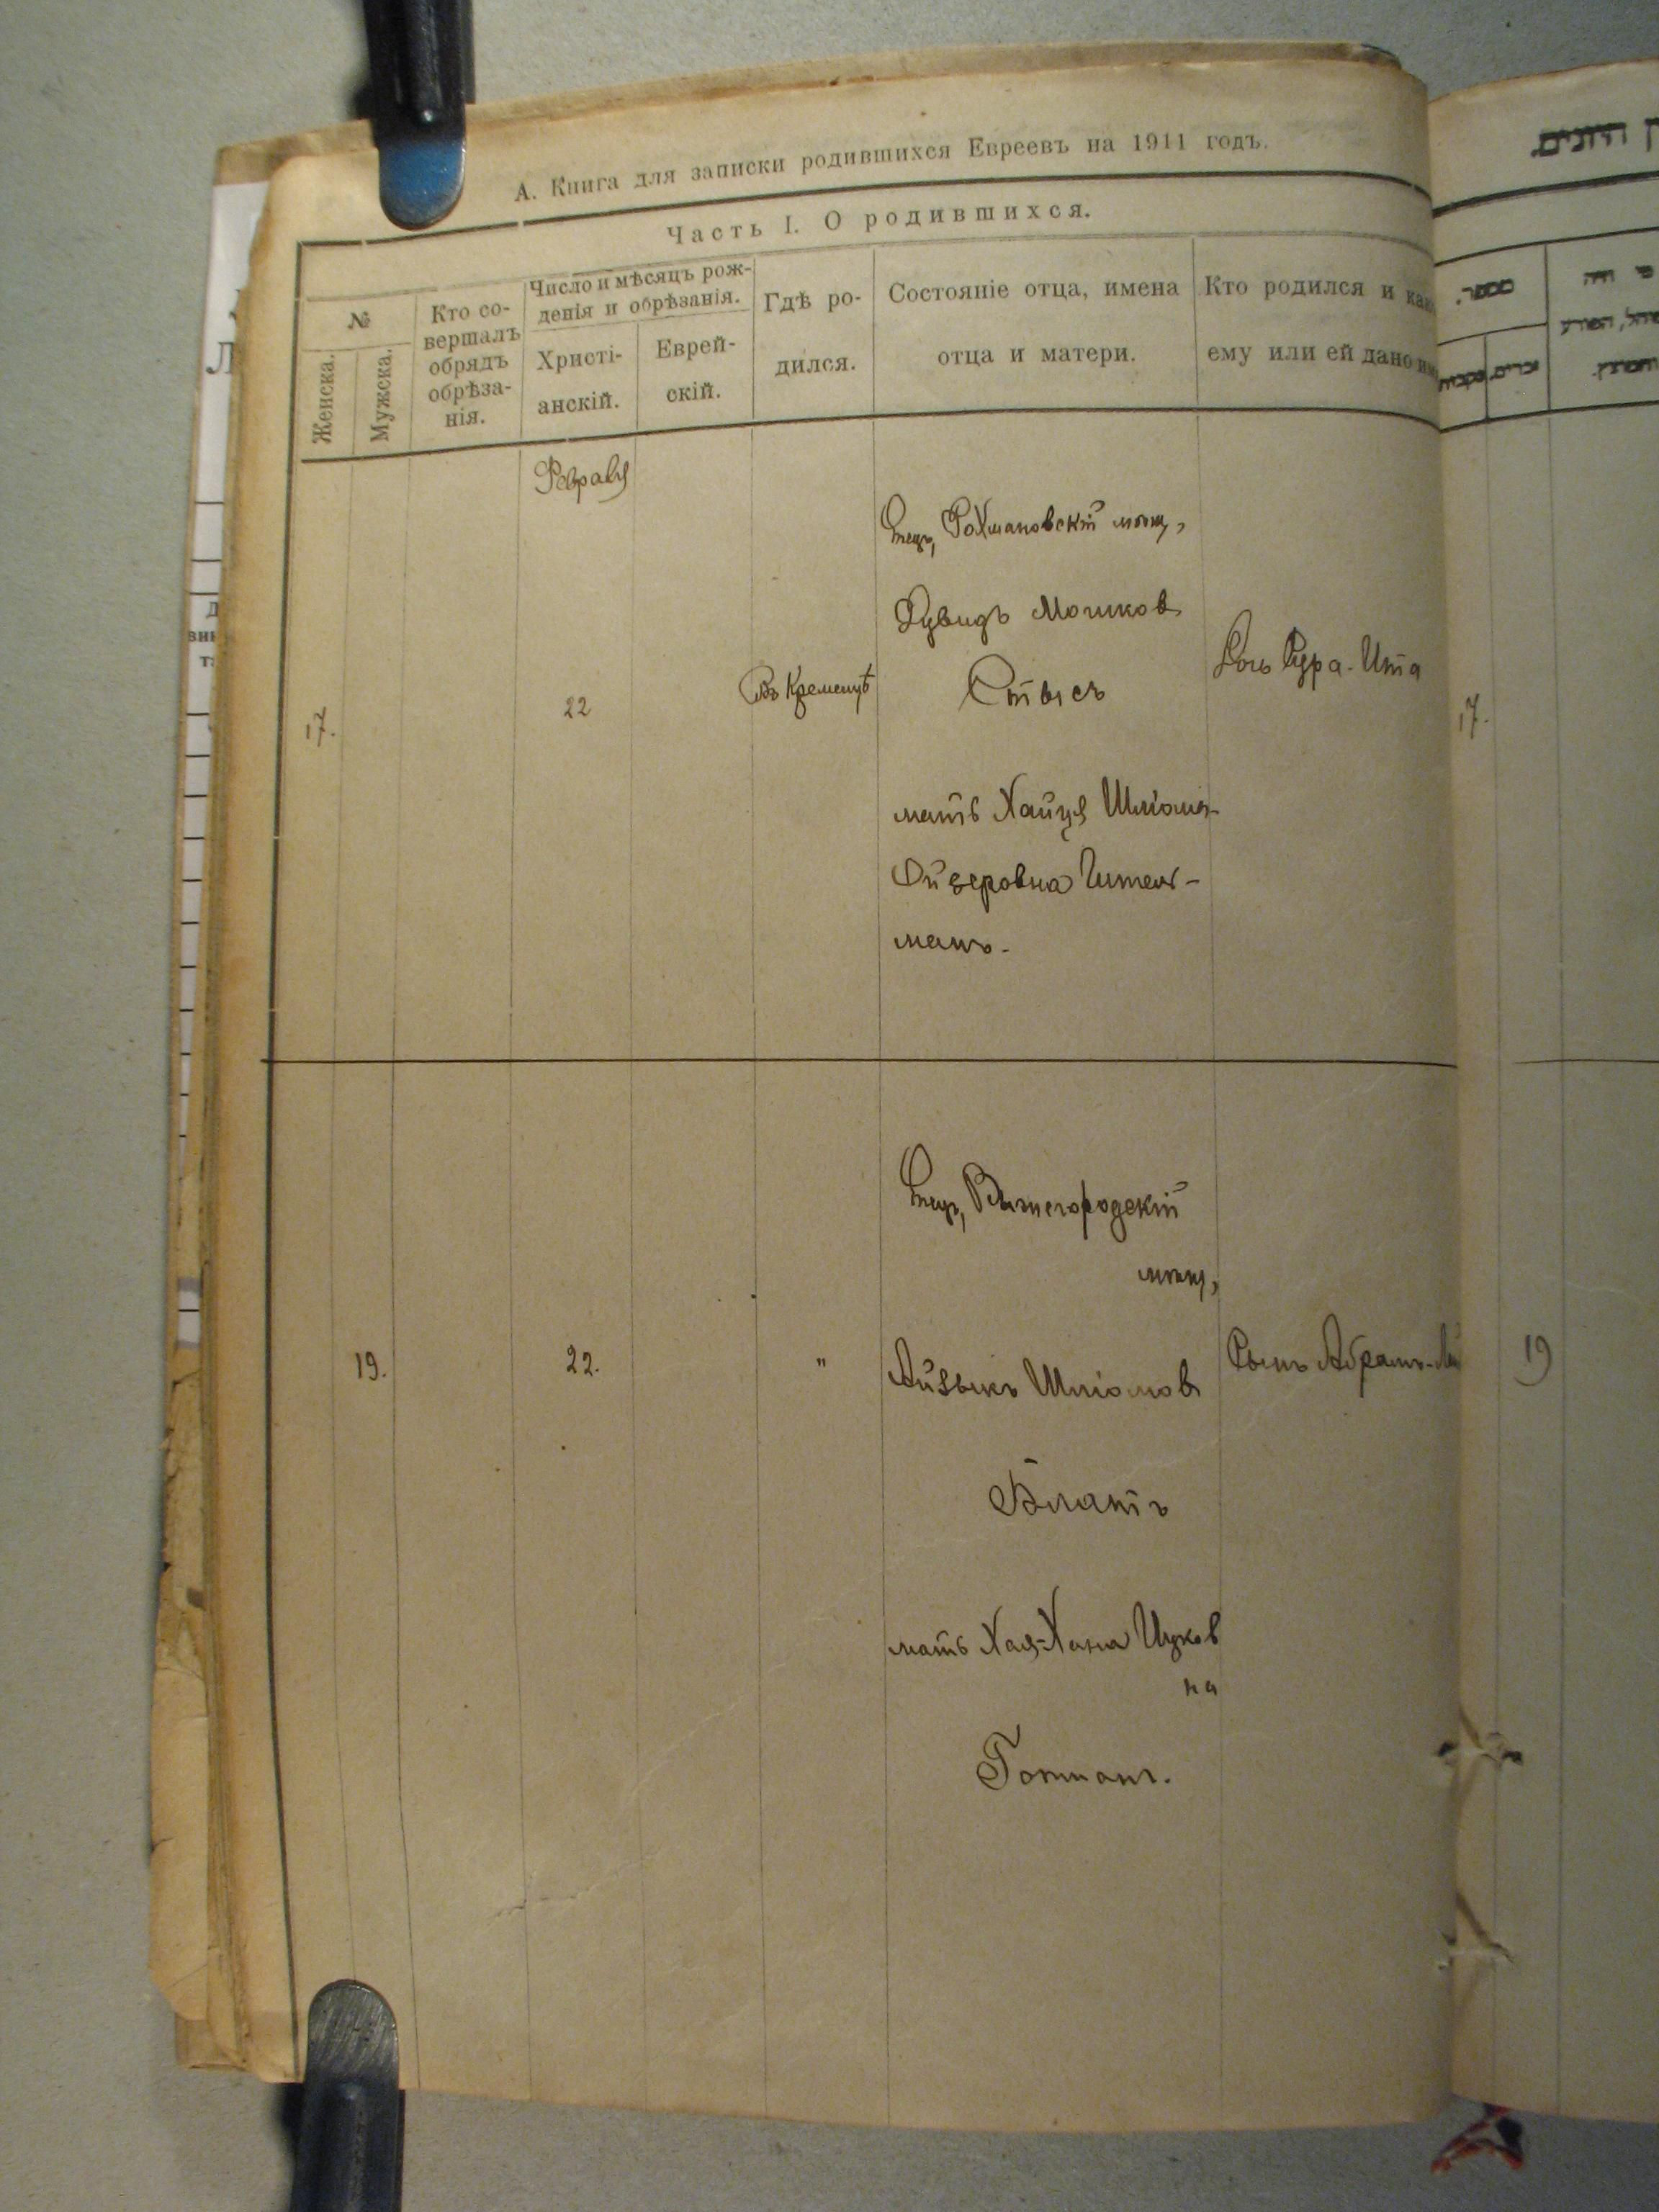 А. Книга для записки родившихся Евреевъ на 1911 годъ.
Часть I. О родившихся.
№
Женска.
Мужска.
Кто со-
вершалъ
обрядъ
обрѣза-
нія.
Число и мѣсяцъ рож-
денія и обрѣзанія.
Христі-
анскій.
Еврей-
скій.
Гдѣ ро-
дился.
Состояніе отца, имена
отца и матери.
Кто родился и как
ему или ей дано им
Февраля
17.
22
Въ Кременцѣ
Отецъ, Рахмановскій мѣщ,
Дувидъ Мошков
Стысъ
мать Хайця Шліома-
Ойзеровна Гитель-
манъ.
Дочь Сура-Ита
17.
19.
22.
"
Отецъ, Вышегородскій
мѣщ,
Айзыкъ Шліомов
Блатъ
мать Хая-Хана Ицков
на
Сынъ Абрамъ-
19
מספר.
זכרים.